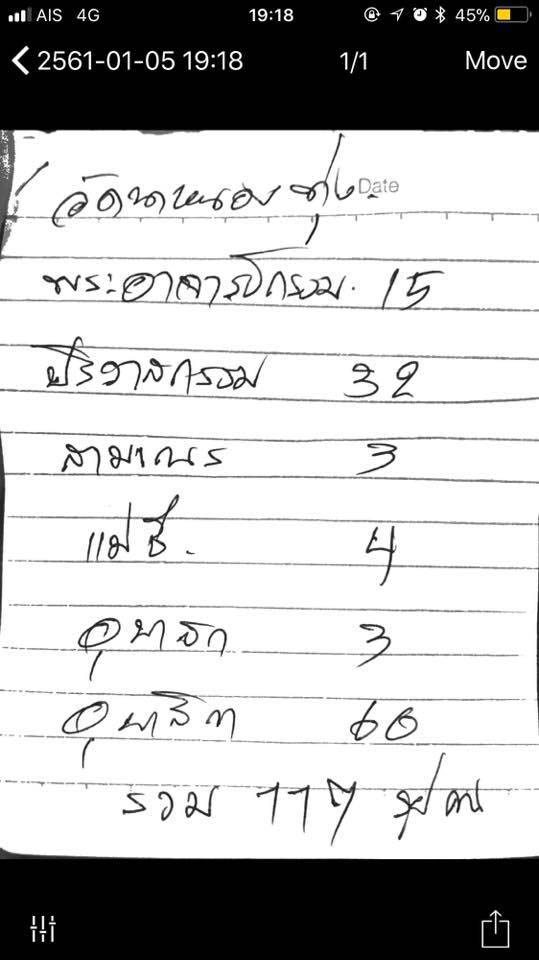 AIS 4G 19:18 45%
2561-01-05 19:18 1/1 Move
Date
วัดนาหนองทุ่ม
พระอาจารย์กรรม. 15
ปริวาสกรรม 32
สามเณร 3
แม่ชี. 4
อุบาสก 3
อุบาสิกา 60
รวม 117 รูป/คน